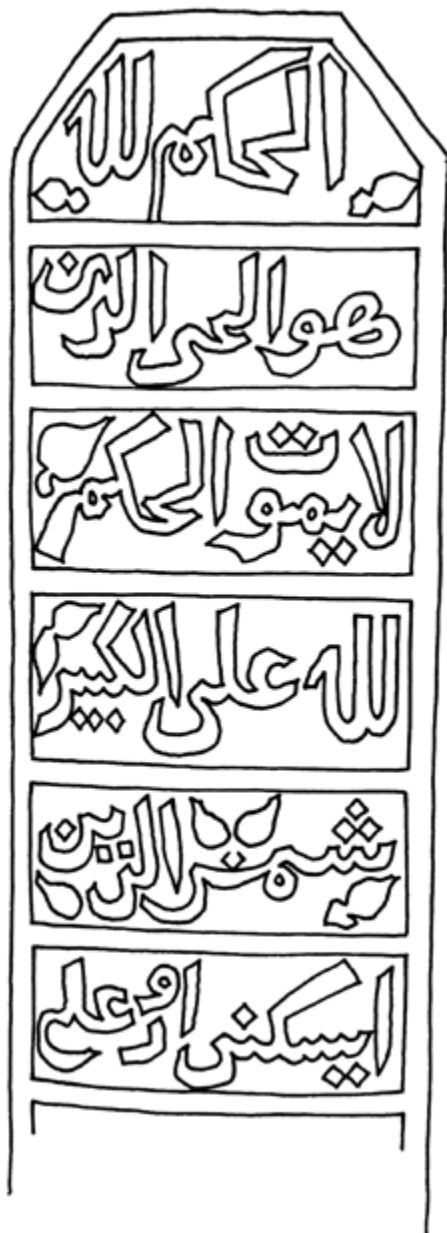 الحكم لله
هو الحى الدين
لا يموت الحكم
لله على الكبير
شمس الدين
على